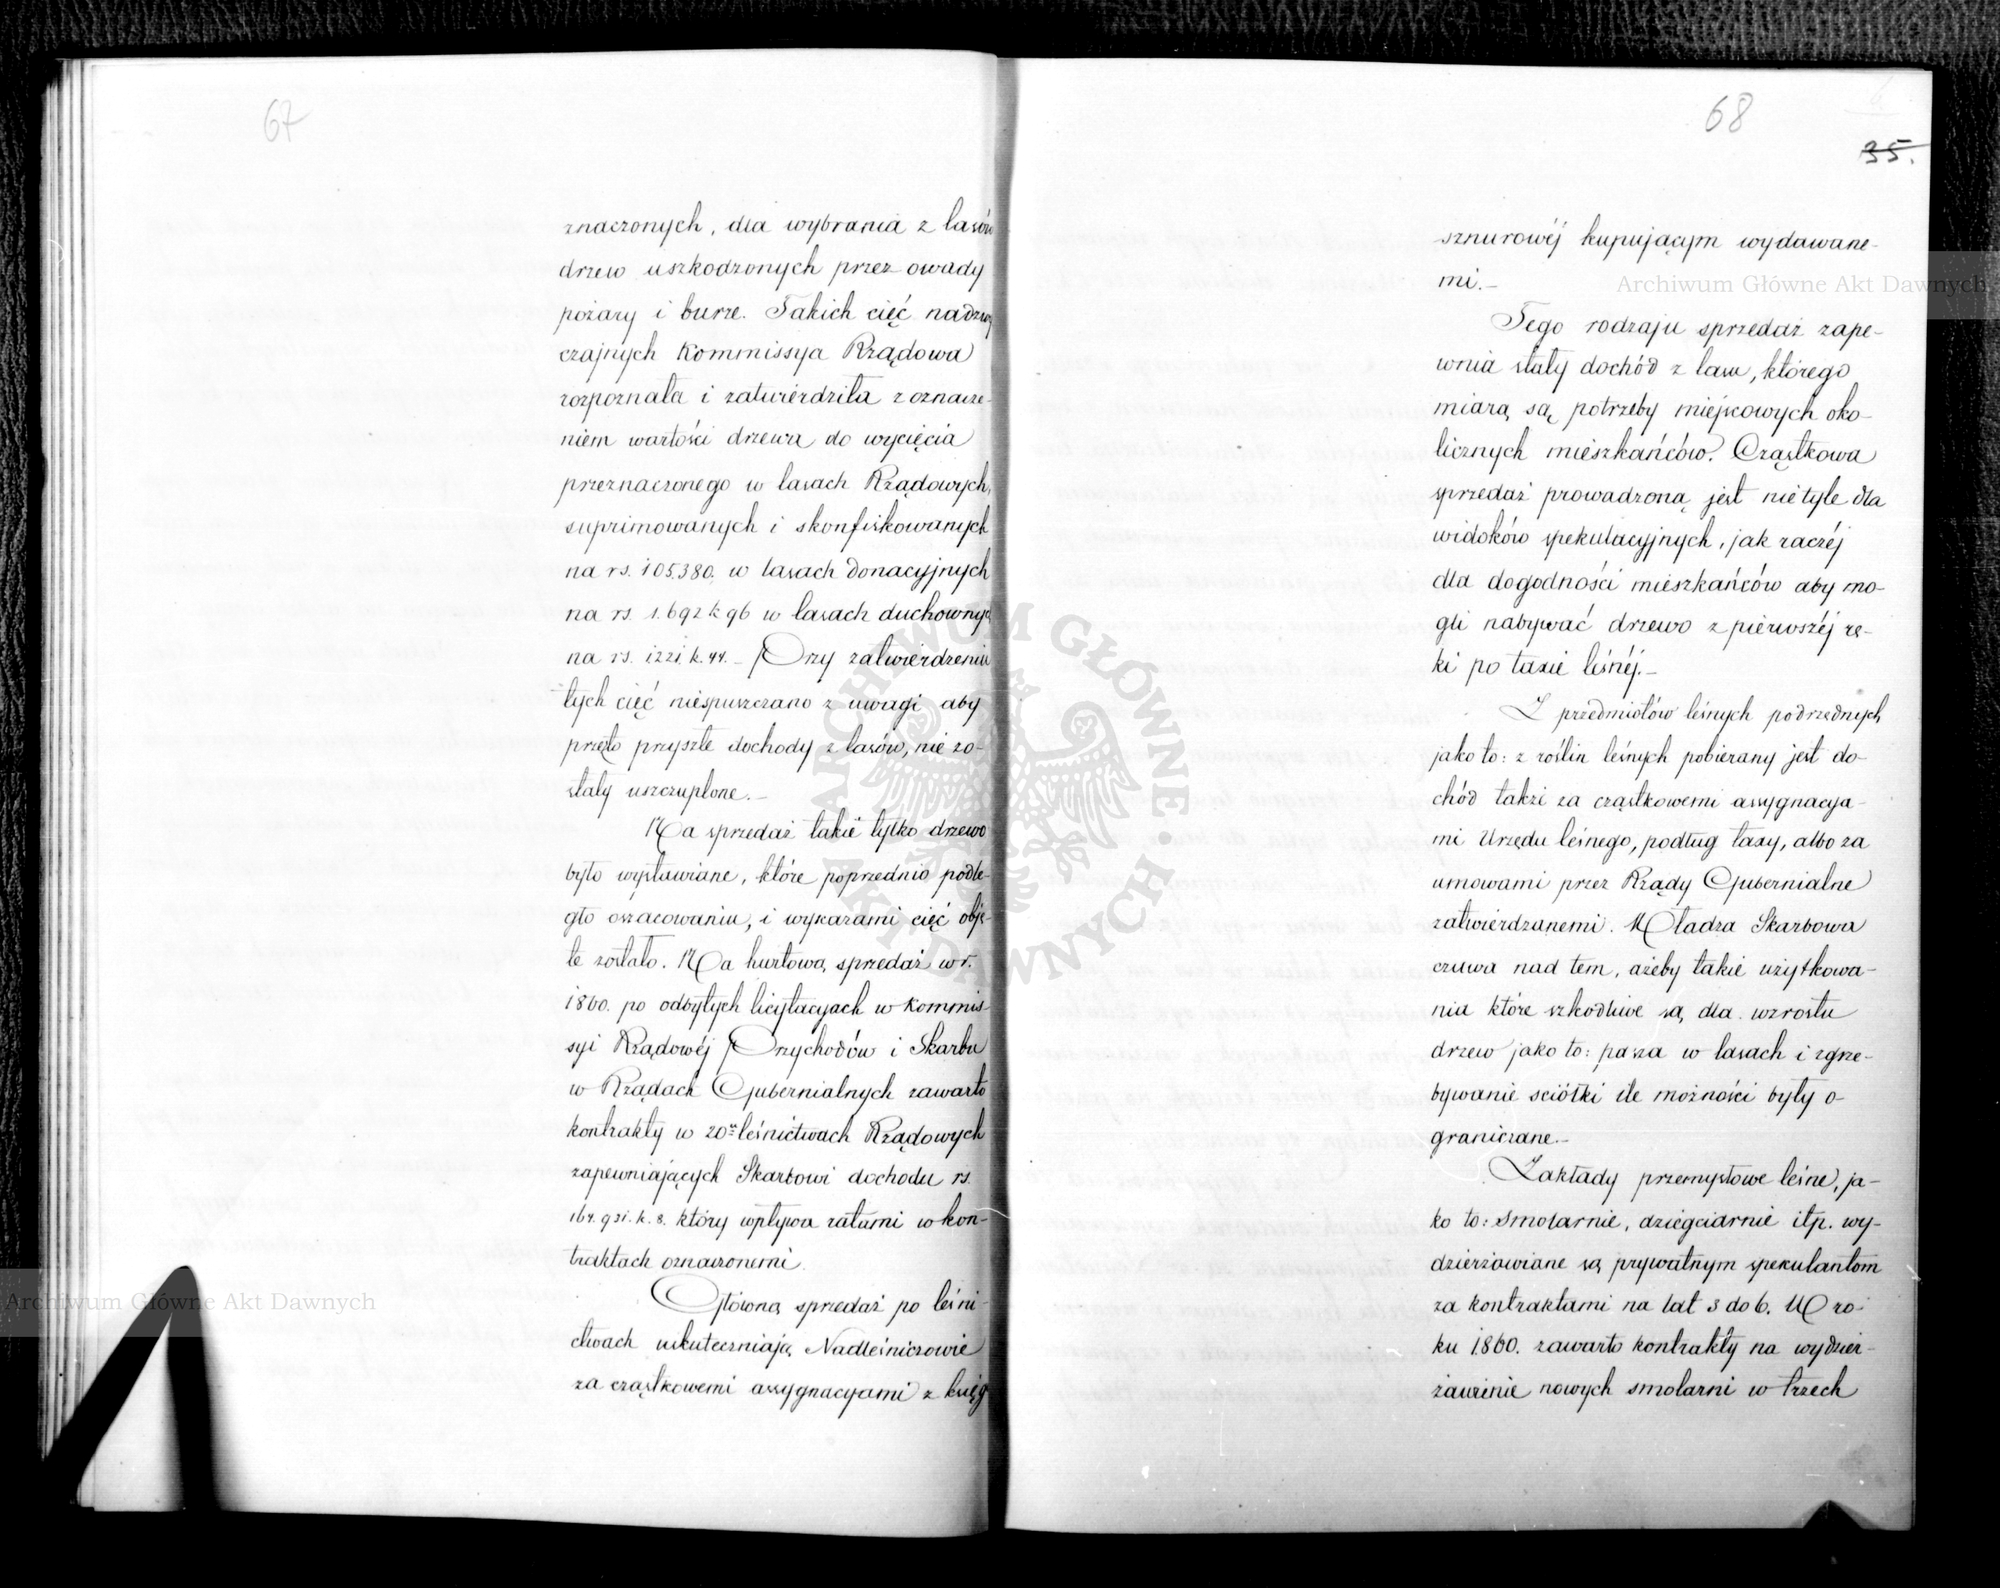 67
znaczonych, dla wybrania z lasów
drzew uszkodzonych przez owady
pożary i burze. Takich cięć nadzwy
czajnych Kommissya Rządowa
rozpoznała i zatwierdziła z oznacze-
niem wartości drzewa do wycięcia
przeznaczonego w lasach Rządowych,
suprimowanych i skonfiskowanych
na rs. 105.380. w lasach donacyjnych
na rs. 1.692 k 96 w lasach duchownych
na rs. 1221. k. 44. – Przy zatwierdzeniu
tych cięć niespuszczano z uwagi aby
przęto przyszłe dochody z lasów, nie zo-
stały uszczuplone. –
Na sprzedaż takie tylko drzewo
było wystawiane, które poprzednio podle-
gło oszacowaniu, i wykazami cięć obję-
te zostało. Na hurtową sprzedaż w r.
1860. po odbytych licytacyach w Kommis-
syi Rządowéj Przychodów i Skarbu
w Rządach Gubernialnych zawarto
kontrakty w 20 leśnictwach Rządowych
zapewniających Skarbowi dochodu rs.
164.931. k. 8. który wpływa ratami w kon-
traktach oznaczonemi.
Główną sprzedaż po leśni-
ctwach uskuteczniają Nadleśniczowie
za cząstkowemi assygnacyami z księg
68
35.
sznurowéj kupującym wydawane-
mi. –
Tego rodzaju sprzedaż zape-
wnia stały dochód z lasu, którego
miarą są potrzeby miejscowych oko-
licznych mieszkańców. Cząstkowa
sprzedaż prowadzoną jest nietyle dla
widoków spekulacyjnych, jak raczéj
dla dogodności mieszkańców aby mo-
gli nabywać drzewo z pierwszéj rę-
ki po taxie leśnéj. –
Z przedmiotów leśnych podrzędnych
jako to: z roślin leśnych pobierany jest do-
chód także za cząstkowemi assygnacya-
mi Urzędu leśnego, podług taxy, albo za
umowami przez Rządy Gubernialne
zatwierdzanemi. Władza Skarbowa
czuwa nad tem, ażeby takie użytkowa-
nia które szkodliwe są dla wzrostu
drzew jako to: pasza w lasach i zgrze-
bywanie sciółki ile możności były o-
graniczane. –
Zakłady przemysłowe leśne, ja-
ko to: smolarnie, dziegciarnie itp. wy-
dzierżawiane są prywatnym spekulantom
za kontraktami na lat 3 do 6. W ro-
ku 1860. zawarto kontrakty na wydzier-
żawienie nowych smolarni w trzech
Archiwum Główne Akt Dawnych
Archiwum Główne Akt Dawnych
ARCHIWUM GŁÓWNE AKT DAWNYCH